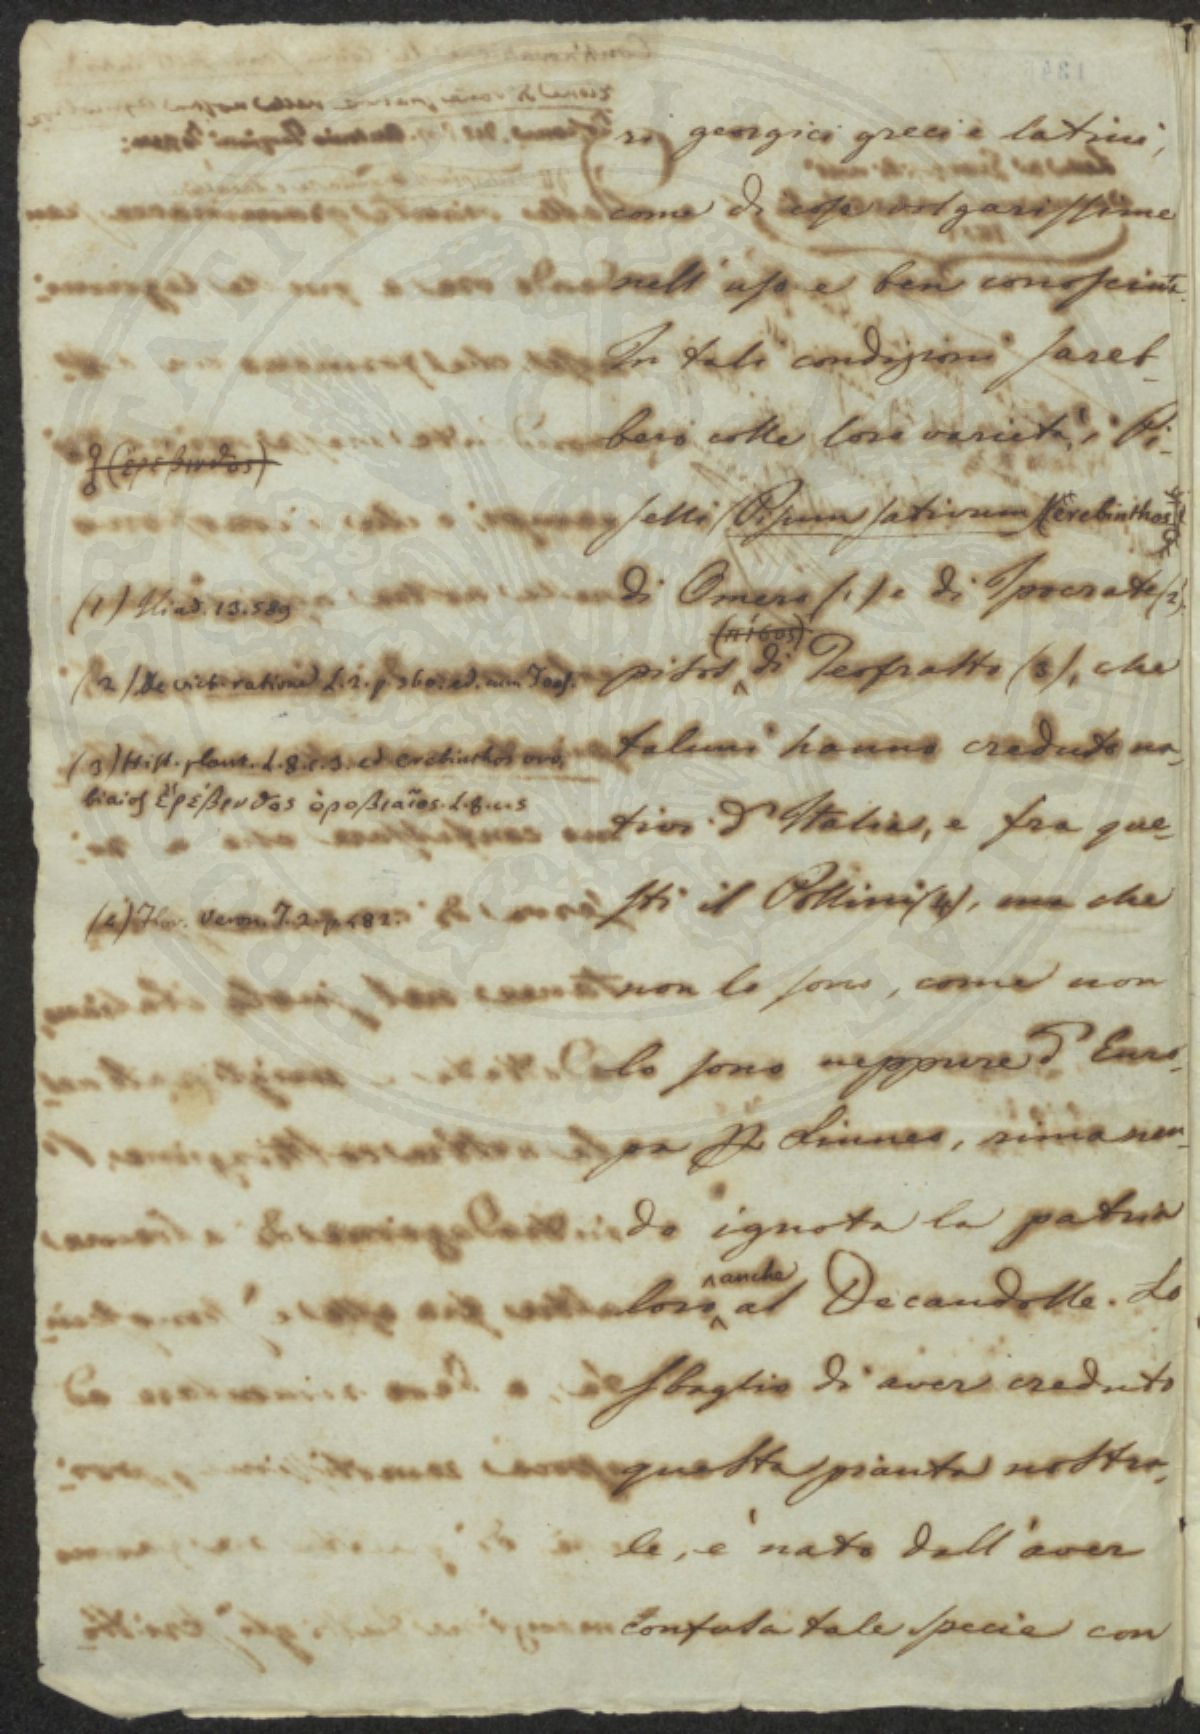 ri georgici greci e latini,
come di cose volgarissime
nell'uso e ben conosciute.
In tali condizioni sareb-
bero colle loro varietà, i Pi-
(ἐρέβινθος)
selli (Pisum sativum (erebinthos
di Omero (1) e di Ipocrate (2),
(πίσος)
pisos di Teofrasto (3), che
taluni hanno creduto na-
tivi d'Italia, e fra que-
sti il Pollini (4), ma che
non lo sono, come non
lo sono neppure d'Euro-
pa pr Linneo, rimanen-
do ignota la patria
anche
loro al Decandolle. Lo
sbaglio di aver creduto
questa pianta nostra-
le, è nato dall'aver
confusa tale specie con
(1) Iliad. 13.589
(2) De vict. ratione L. 2. p. 360. ed.
(3) Hist. plant. L. 8. c. 3. ed erebinthos oro,
biaios ἐρέβινθος ὀροβιαῖος. L. 8. c. 5
(4) Flor. Veron. T. 2. p. 482.